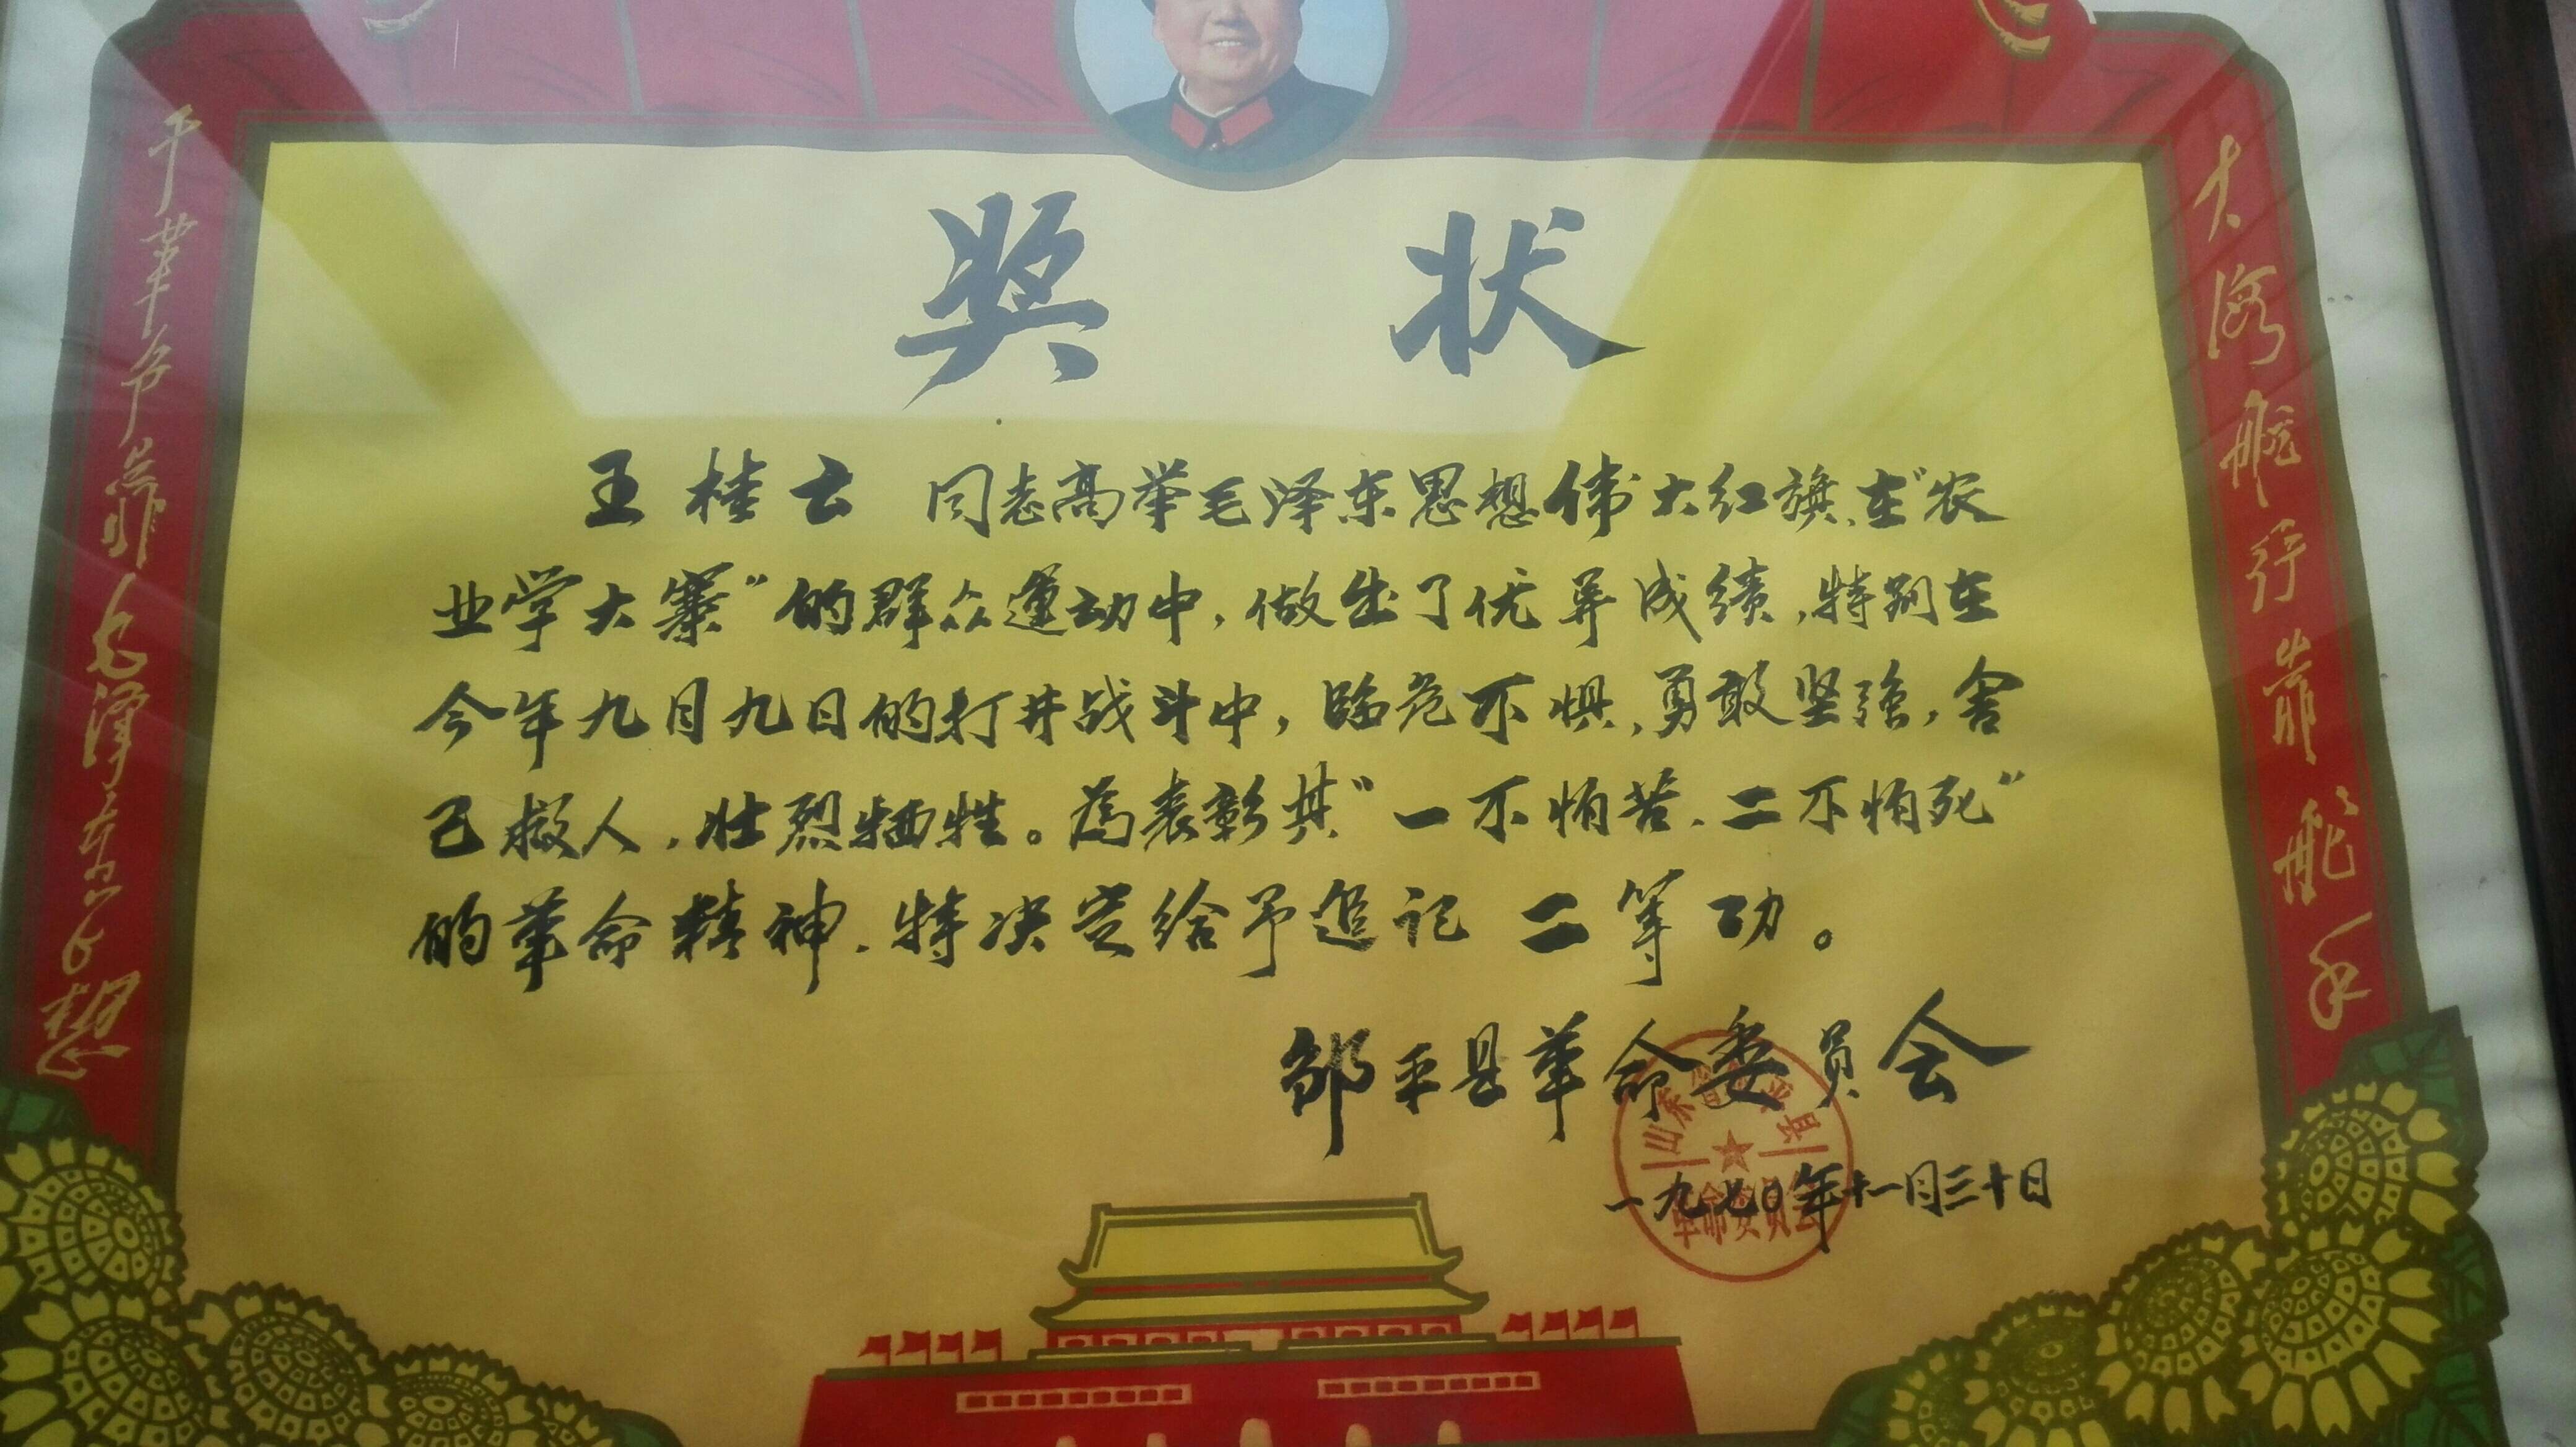 奖状
大海航行靠舵手
干革命靠毛泽东思想
王桂云 同志高举毛泽东思想伟大红旗,在"农
业学大寨"的群众運动中,做出了优异成绩,特别在
今年九月九日的打井战斗中,临危不惧,勇敢坚强,舍
己救人,壮烈牺牲。為表彰其"一不怕苦、二不怕死"
的革命精神,特决定给予追记 二等功。
邹平县革命委员会
一九七〇年十一月三十日
山东省邹平县
革命委员会